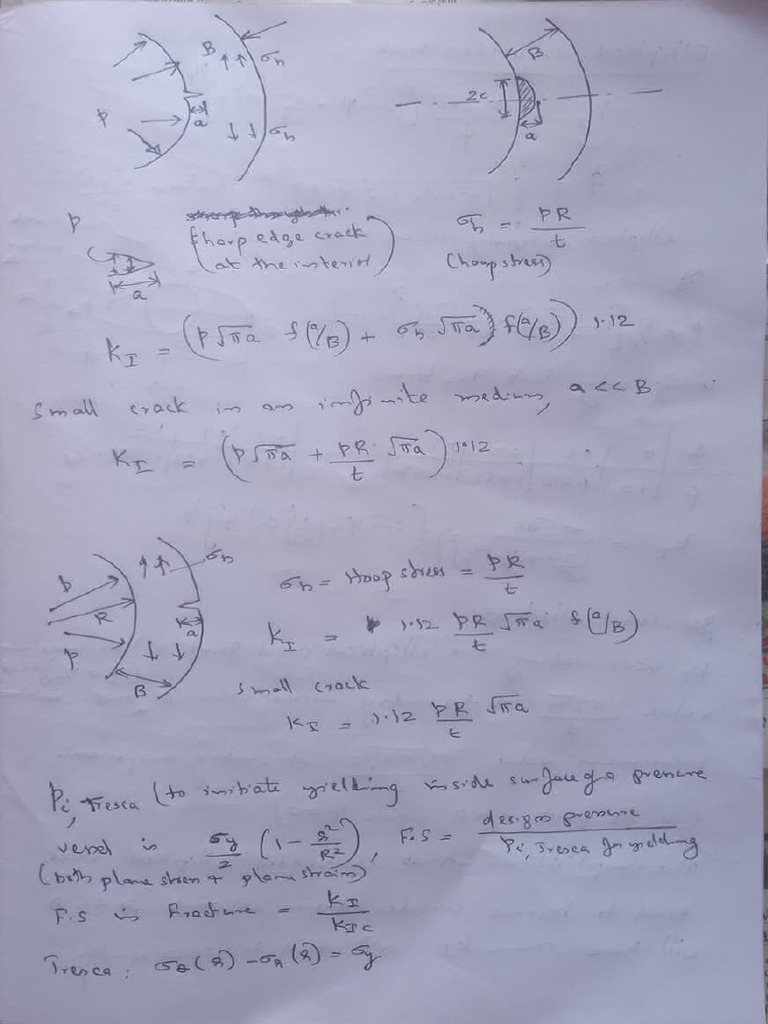 B
σh
p
a
σh
B
2c
a
p
a
(sharp edge crack
at the interior)
σh = PR/t
(hoop stress)
KI = (p√πa f(a/B) + σh √πa f(a/B)) 1.12
small crack in an infinite medium, a << B
KI = (p√πa + PR/t √πa) 1.12
p
R
p
σh
a
B
σh = Hoop stress = PR/t
KI = 1.12 PR/t √πa f(a/B)
small crack
KI = 1.12 PR/t √πa
Pi, Tresca (to initiate yielding inside surface of a pressure
vessel is σy/2 (1 - r²/R²), F.S = design pressure / Pi, Tresca for yielding
(both plane stress + plane strain)
F.S in fracture = KI/KIc
Tresca: σθ(r) - σr(r) = σy